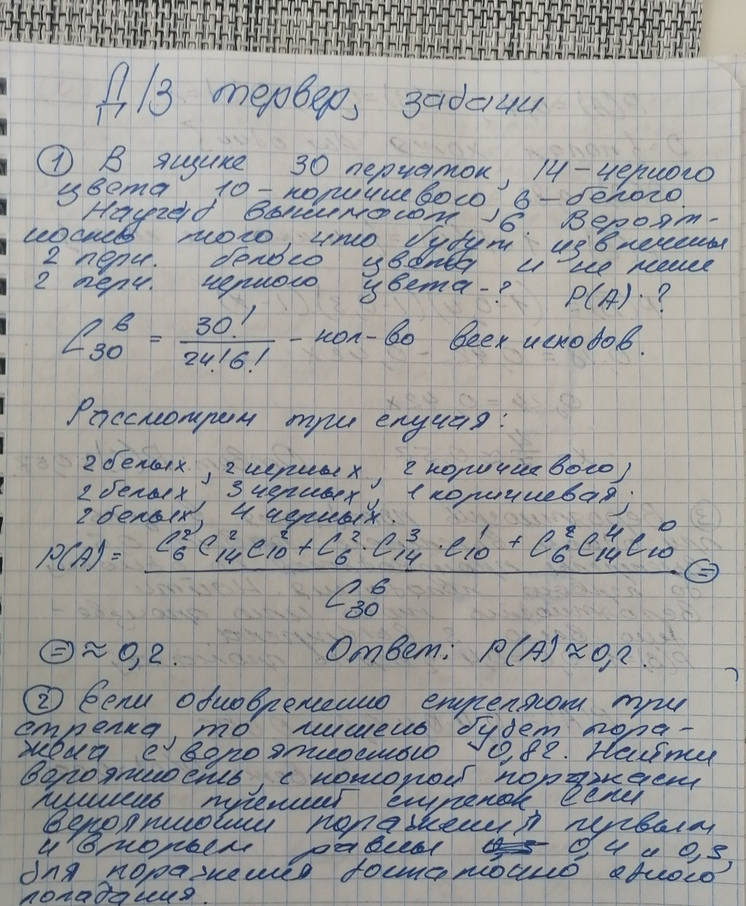 Д/З тервер, задачи
① В ящике 30 перчаток, 14 - черного
цвета, 10 - коричневого, 6 - белого.
Наугад вынимают 6. Вероят-
ность того, что будут извлечены
2 перч. белого цвета и не менее
2 перч. черного цвета - ? P(A) - ?
C₃₀⁶ = 30! / 24!6! - кол-во всех исходов.
Рассмотрим три случая:
2 белых, 2 черных, 2 коричневого;
2 белых, 3 черных, 1 коричневая;
2 белых, 4 черных.
P(A) = C₆² C₁₄² C₁₀² + C₆² · C₁₄³ · C₁₀¹ + C₆² C₁₄⁴ C₁₀⁰ / C₃₀⁶ =
= ≈ 0,2. Ответ: P(A) ≈ 0,2.
② Если одновременно стреляют три
стрелка, то мишень будет пора-
жена с вероятностью 0,82. Найти
вероятность, с которой поражает
мишень третий стрелок, если
вероятности поражения первым
и вторым равны 0,4 и 0,3,
для поражения достаточно одного
попадания.